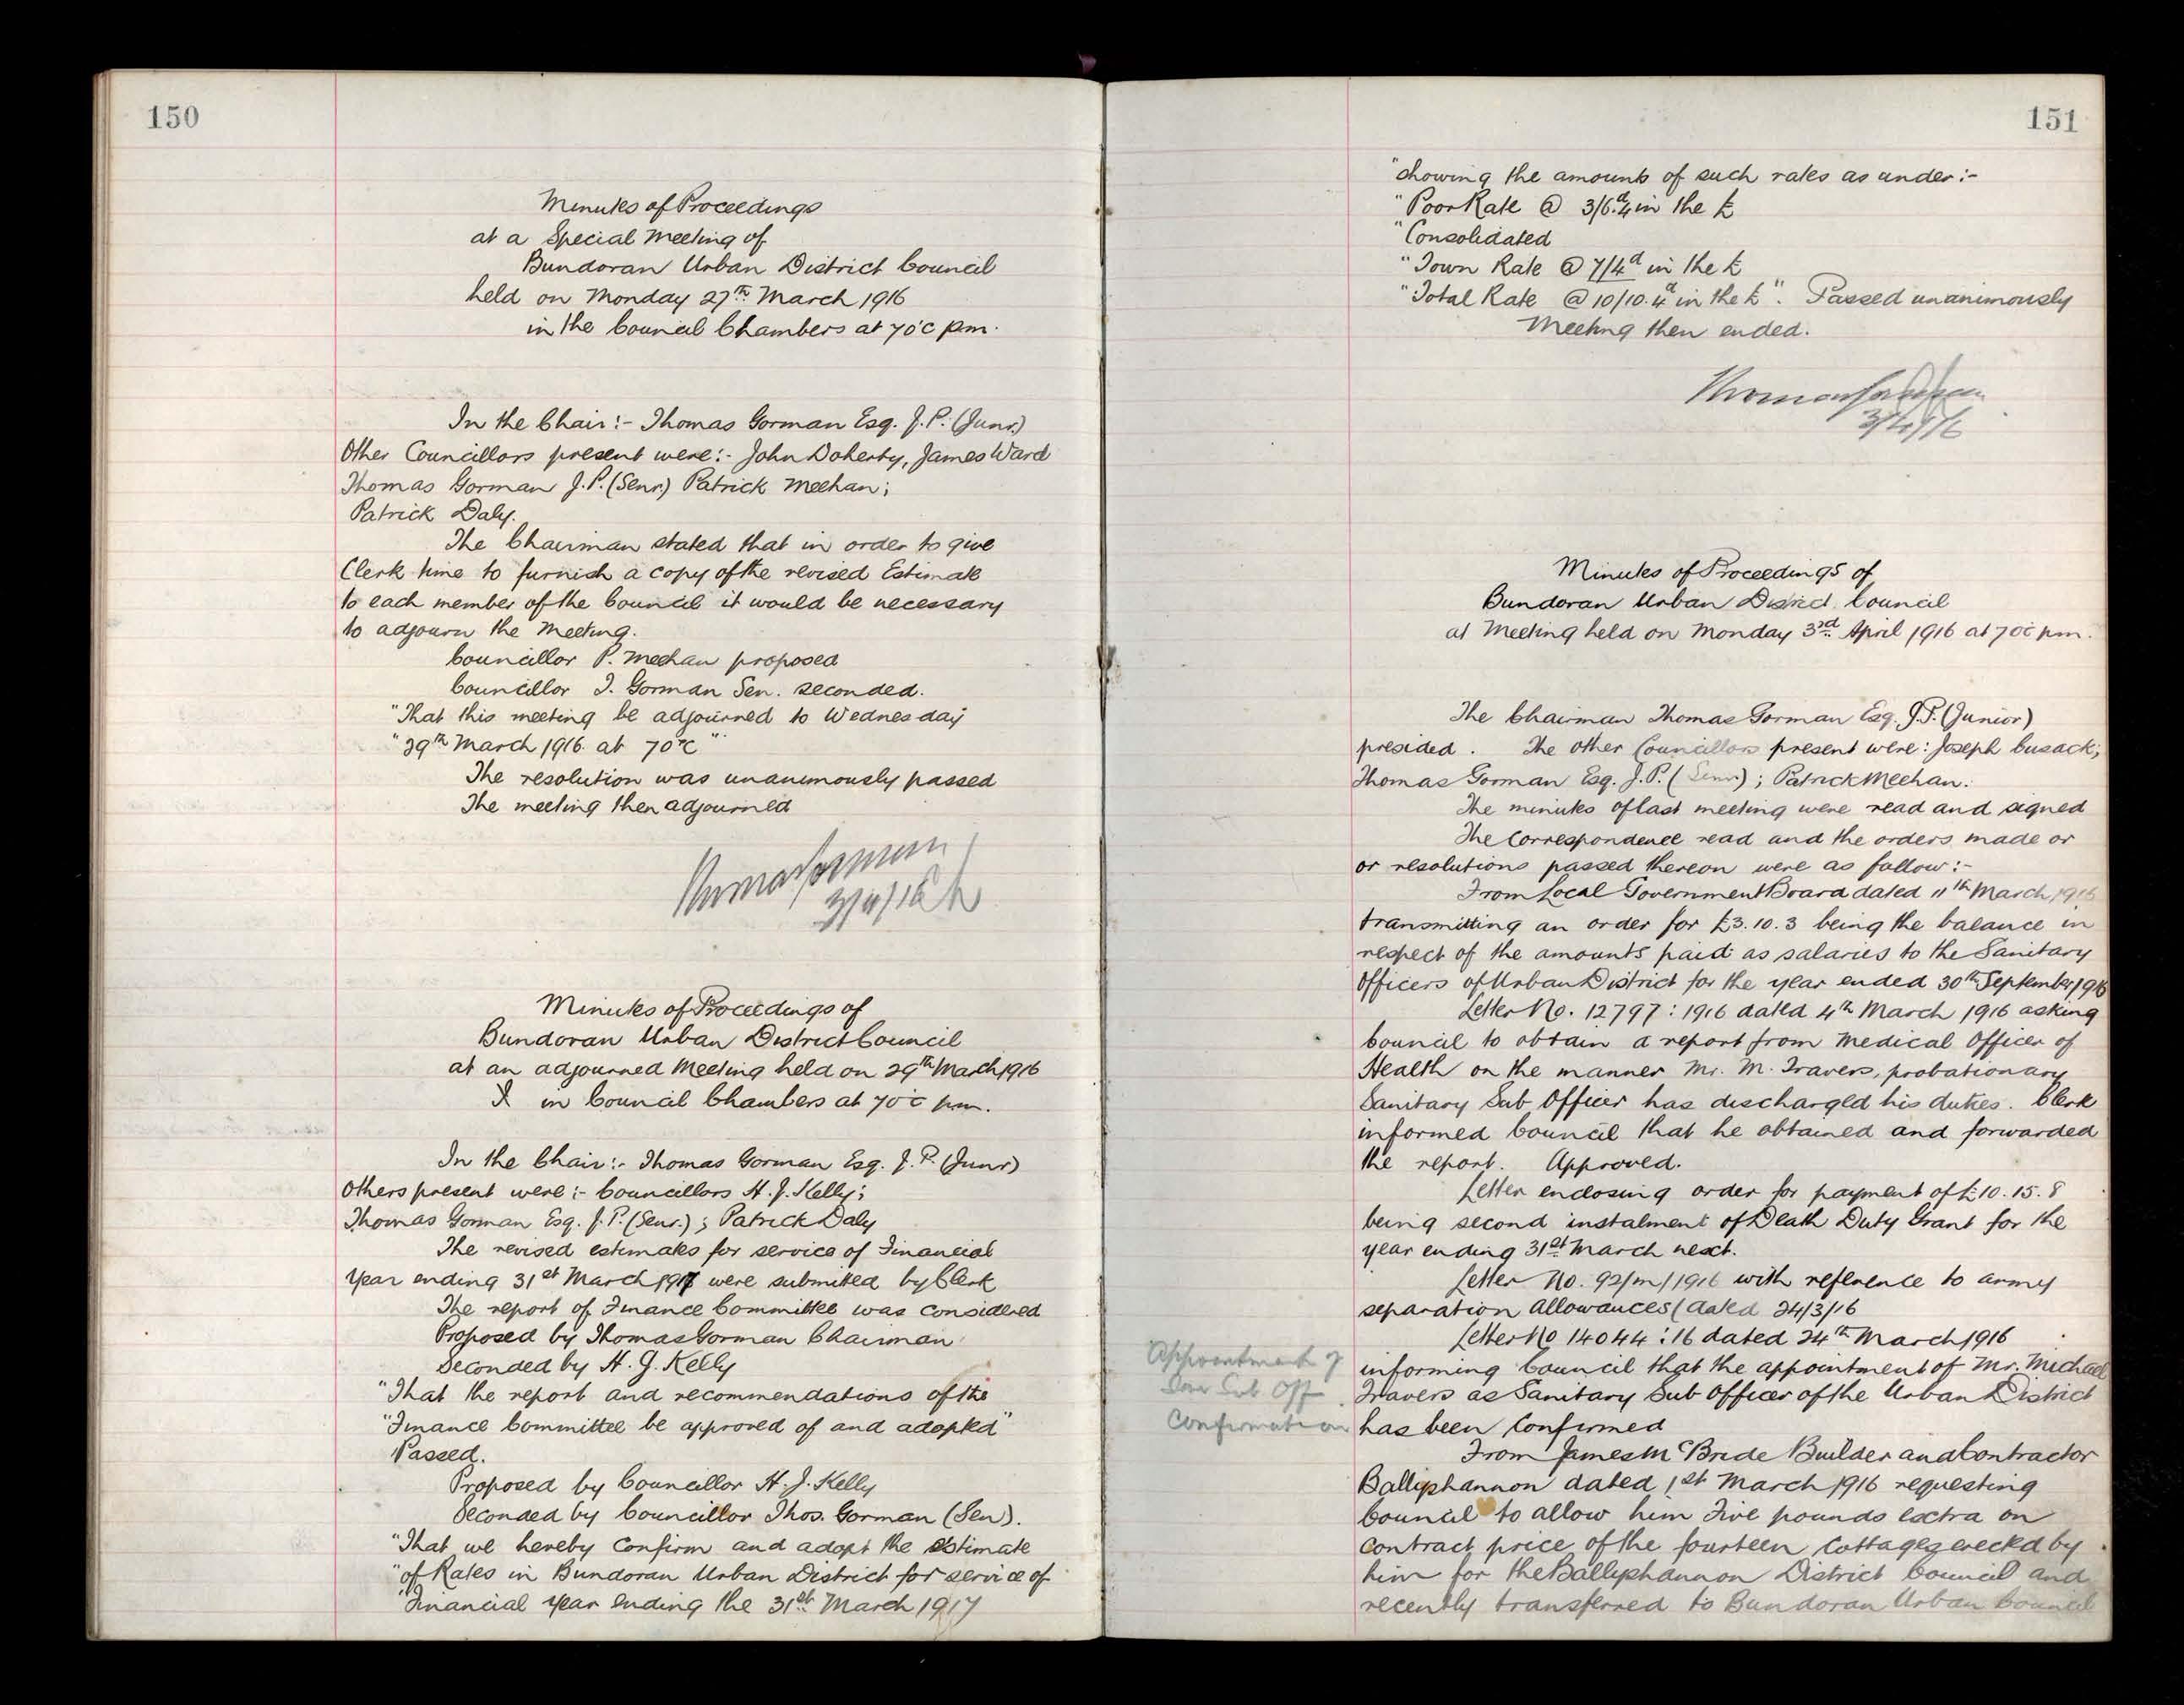 150
Minutes of Proceedings
at a Special Meeting of
Bundoran Urban District Council
held on Monday 27th March 1916
in the Council Chambers at 7 o'c pm.
In the Chair:- Thomas Gorman Esq. J.P. (Junr.)
Other Councillors present were:- John Doherty, James Ward
Thomas Gorman J.P. (Senr.) Patrick Meehan;
Patrick Daly.
The Chairman stated that in order to give
Clerk time to furnish a copy of the revised Estimate
to each member of the Council it would be necessary
to adjourn the Meeting.
Councillor P. Meehan proposed
Councillor T. Gorman Sen. seconded.
"That this meeting be adjourned to Wednesday
"29th March 1916 at 7 o'c"
The resolution was unanimously passed
The meeting then adjourned
Thomas Gorman
3/4/16 Ch
Minutes of Proceedings of
Bundoran Urban District Council
at an adjourned Meeting held on 29th March 1916
in Council Chambers at 7 o'c pm.
In the Chair:- Thomas Gorman Esq. J.P. (Junr)
Others present were:- Councillors H. J. Kelly;
Thomas Gorman Esq. J.P. (Senr.); Patrick Daly
The revised estimates for service of Financial
Year ending 31st March 1917 were submitted by Clerk
The report of Finance Committee was considered
Proposed by Thomas Gorman Chairman
Seconded by H. J. Kelly
"That the report and recommendations of the
"Finance Committee be approved of and adopted"
Passed.
Proposed by Councillor H. J. Kelly
Seconded by Councillor Thos. Gorman (Sen).
"That we hereby confirm and adopt the estimate
"of Rates in Bundoran Urban District for service of
"Financial Year ending the 31st March 1917
151
"showing the amounts of such rates as under:-
"Poor Rate @ 3/6.4d in the £
"Consolidated
"Town Rate @ 7/4d in the £
"Total Rate @ 10/10.4d in the £". Passed unanimously
Meeting then ended.
Thomas Gorman
3/4/16
Minutes of Proceedings of
Bundoran Urban District Council
at Meeting held on Monday 3rd April 1916 at 7 o'c pm.
The Chairman Thomas Gorman Esq. J.P. (Junior)
presided. The other Councillors present were: Joseph Cusack;
Thomas Gorman Esq. J.P. (Senr.); Patrick Meehan.
The minutes of last meeting were read and signed
The Correspondence read and the orders made or
or resolutions passed thereon were as follow:-
From Local Government Board dated 11th March 1916
transmitting an order for £3.10.3 being the balance in
respect of the amounts paid as salaries to the Sanitary
Officers of Urban District for the year ended 30th September 1916
Letter No. 12797: 1916 dated 4th March 1916 asking
Council to obtain a report from Medical Officer of
Health on the manner Mr. M. Travers, probationary
Sanitary Sub Officer has discharged his duties. Clerk
informed Council that he obtained and forwarded
the report. Approved.
Letter enclosing order for payment of £10.15.8
being second instalment of Death Duty Grant for the
year ending 31st March next.
Letter No. 92/m/1916 with reference to army
separation Allowances (dated 24/3/16
Letter No 14044:16 dated 24th March 1916
Appointment of
San Sub Off
Confirmation
informing Council that the appointment of Mr. Michael
Travers as Sanitary Sub Officer of the Urban District
has been Confirmed
From James McBride Builder and Contractor
Ballyshannon dated 1st March 1916 requesting
Council to allow him Five pounds extra on
contract price of the fourteen Cottages erected by
him for the Ballyshannon District Council and
recently transferred to Bundoran Urban Council